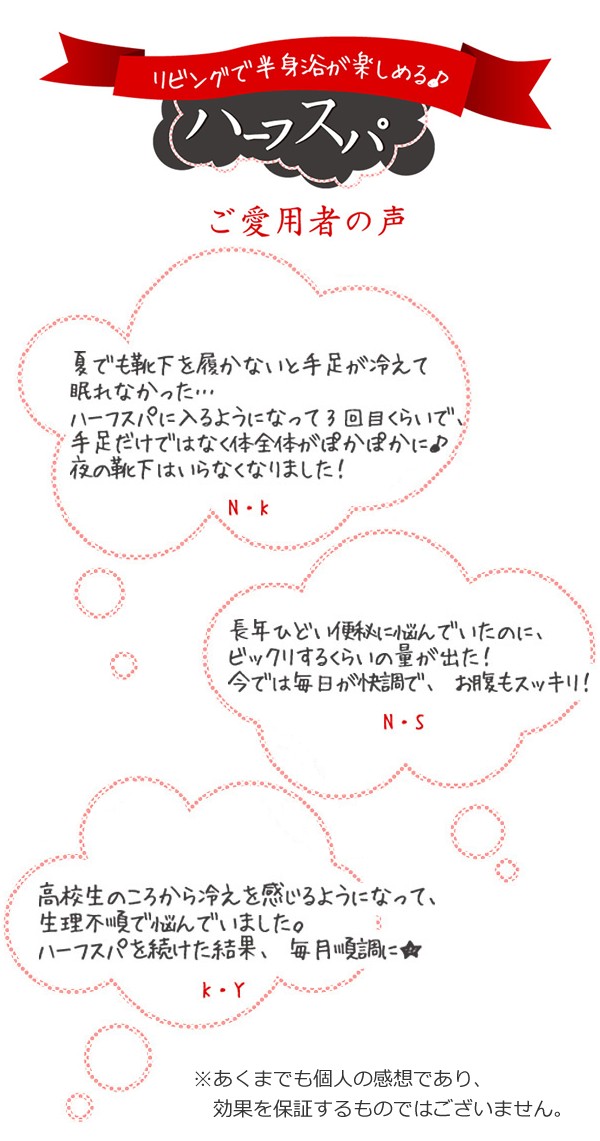 リビングで半身浴が楽しめる♪
ハーフスパ
ご愛用者の声
夏でも靴下を履かないと手足が冷えて
眠れなかった…
ハーフスパに入るようになって3回目くらいで、
手足だけではなく体全体がぽかぽかに♪
夜の靴下はいらなくなりました!
N・K
長年ひどい便秘に悩んでいたのに、
ビックリするくらいの量が出た!
今では毎日が快調で、 お腹もスッキリ!
N・S
高校生のころから冷えを感じるようになって、
生理不順で悩んでいました。
ハーフスパを続けた結果、 毎月順調に★
K・Y
※あくまでも個人の感想であり、
効果を保証するものではございません。